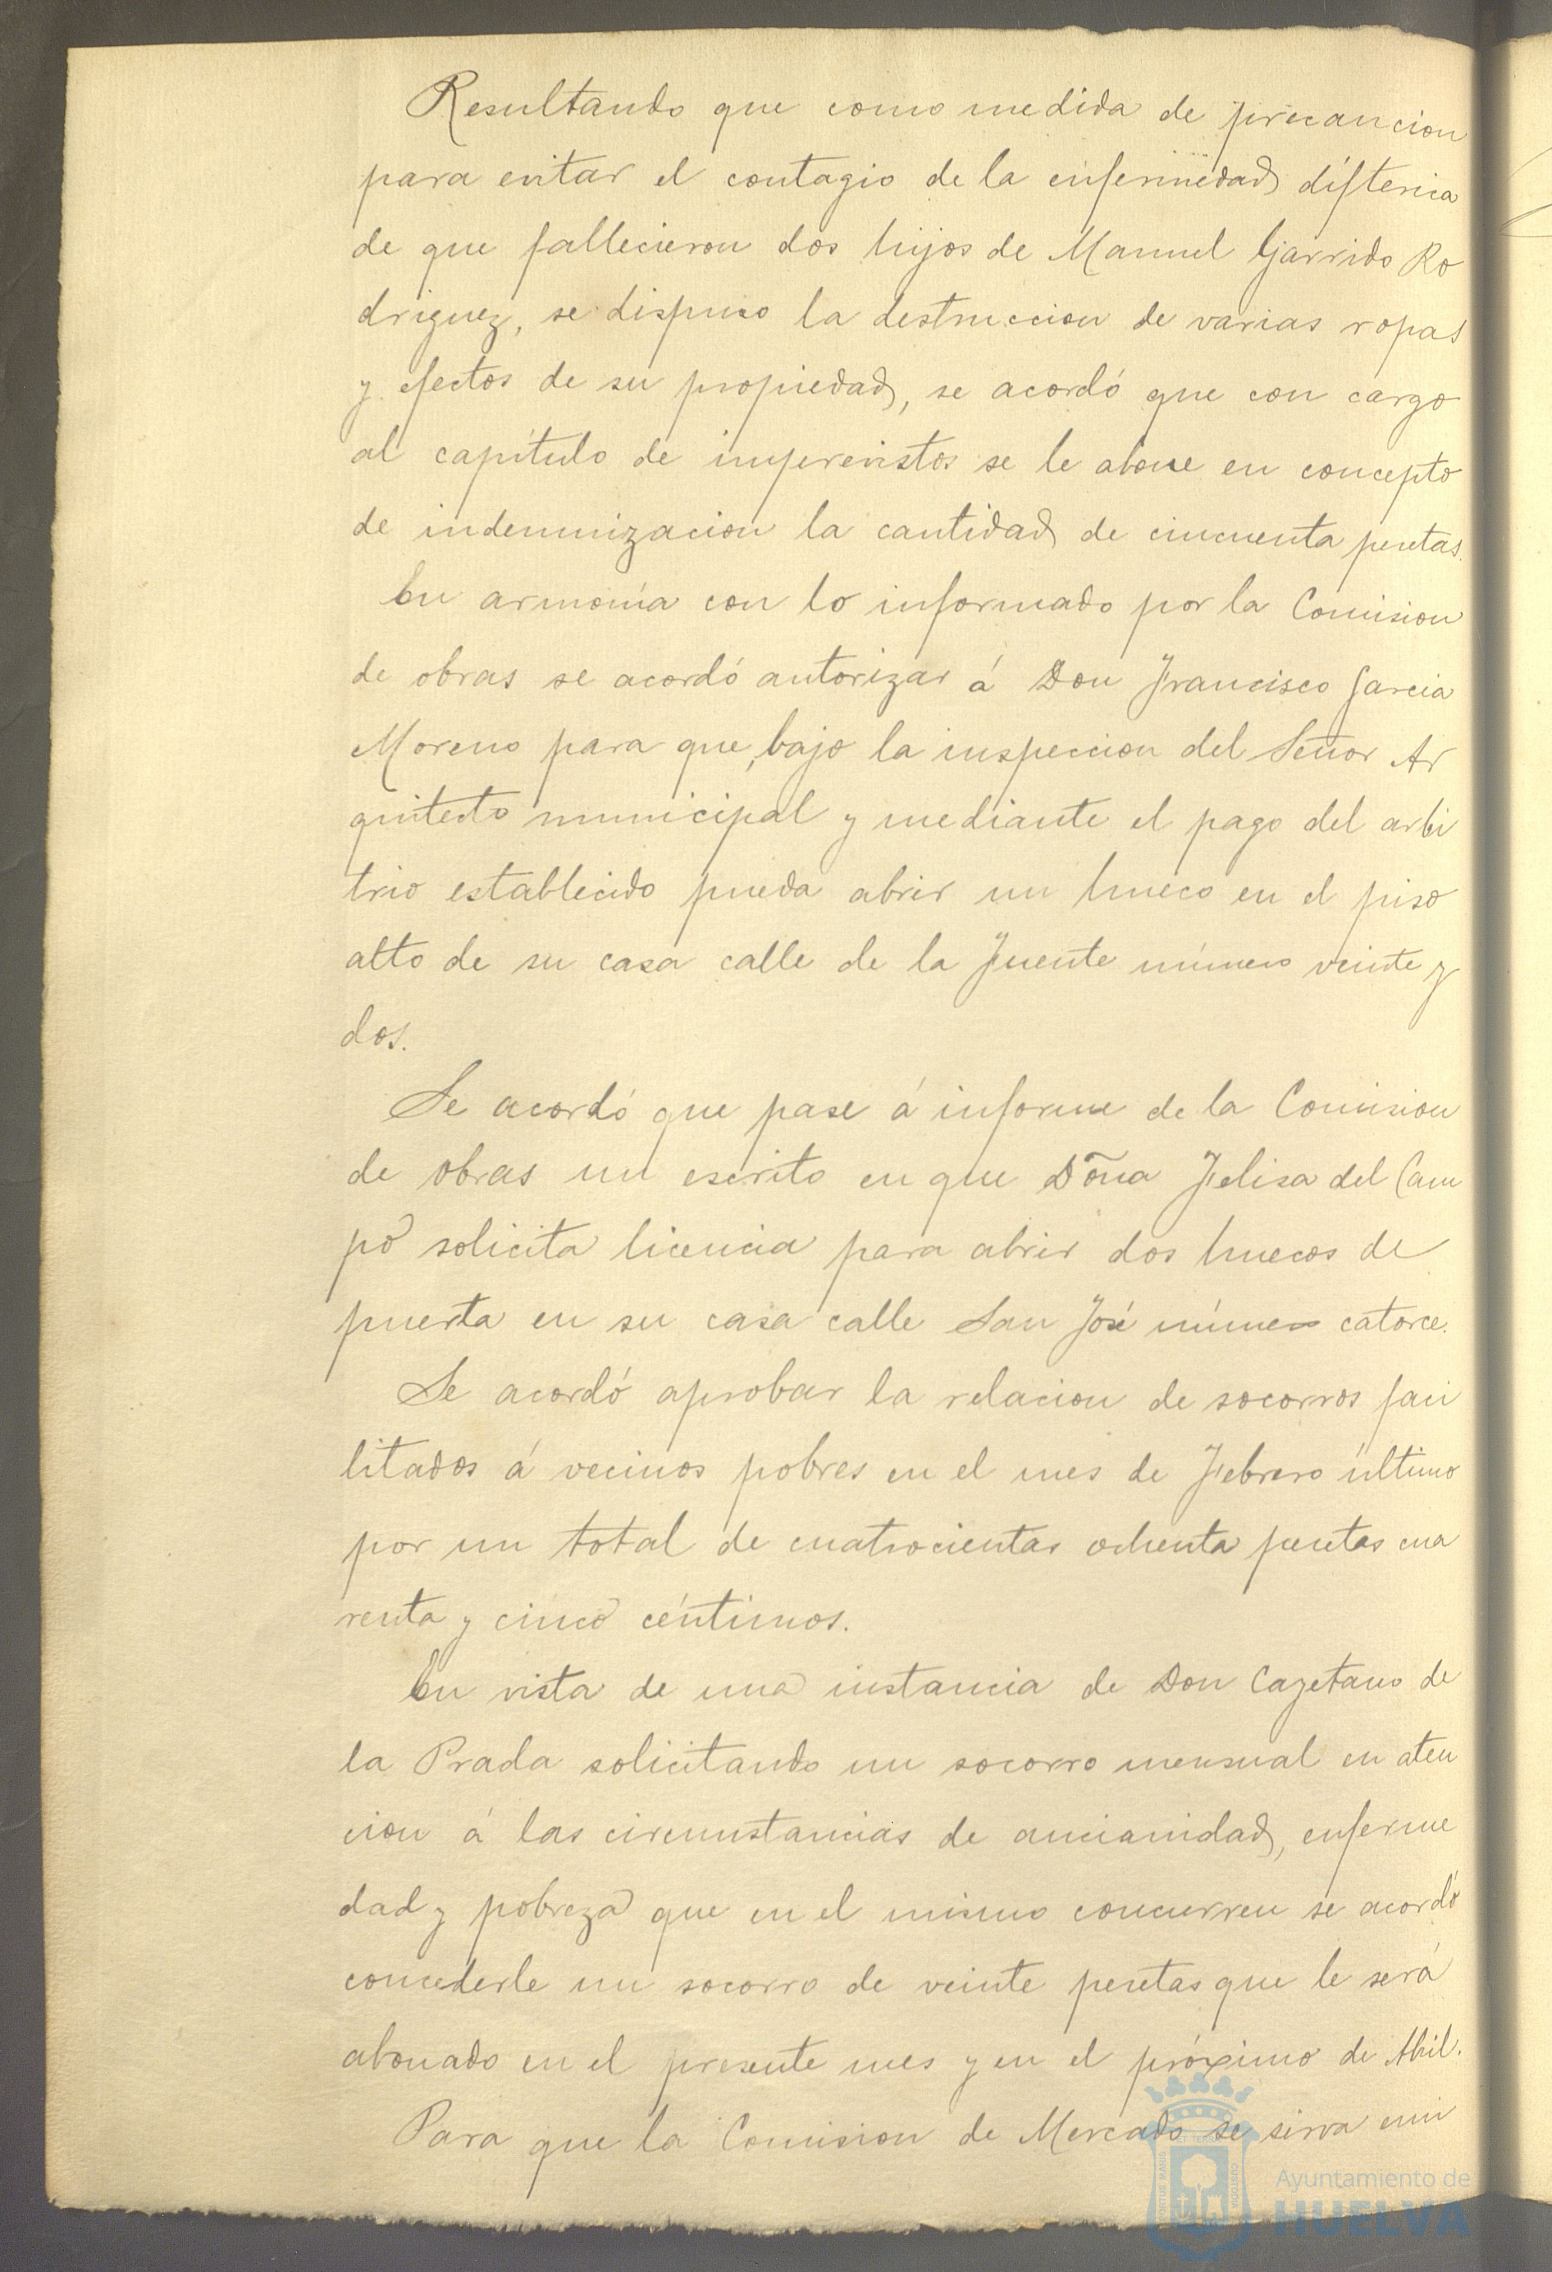 Resultando que como medida de precaucion
para evitar el contagio de la enfermedad diftérica
de que fallecieron dos hijos de Manuel Garrido Ro
driguez, se dispuso la destruccion de varias ropas
y efectos de su propiedad, se acordó que con cargo
al capítulo de imprevistos se le abone en concepto
de indemnizacion la cantidad de cincuenta pesetas.
En armonía con lo informado por la Comision
de obras se acordó autorizar á Don Francisco Garcia
Moreno para que, bajo la inspeccion del Señor Ar
quitecto municipal y mediante el pago del arbi
trio establecido pueda abrir un hueco en el piso
alto de su casa calle de la Fuente número veinte y
dos.
Se acordó que pase á informe de la Comision
de obras un escrito en que Doña Felisa del Cam
po solicita licencia para abrir dos huecos de
puerta en su casa calle San José número catorce.
Se acordó aprobar la relacion de socorros faci
litados á vecinos pobres en el mes de Febrero último
por un total de cuatrocientas ochenta pesetas cua
renta y cinco céntimos.
En vista de una instancia de Don Cayetano de
la Prada solicitando un socorro mensual en aten
cion á las circunstancias de ancianidad, enferme
dad y pobreza que en el mismo concurren se acordó
concederle un socorro de veinte pesetas que le será
abonado en el presente mes y en el próximo de Abril.
Para que la Comision de Mercado se sirva emi
Ayuntamiento de
HUELVA